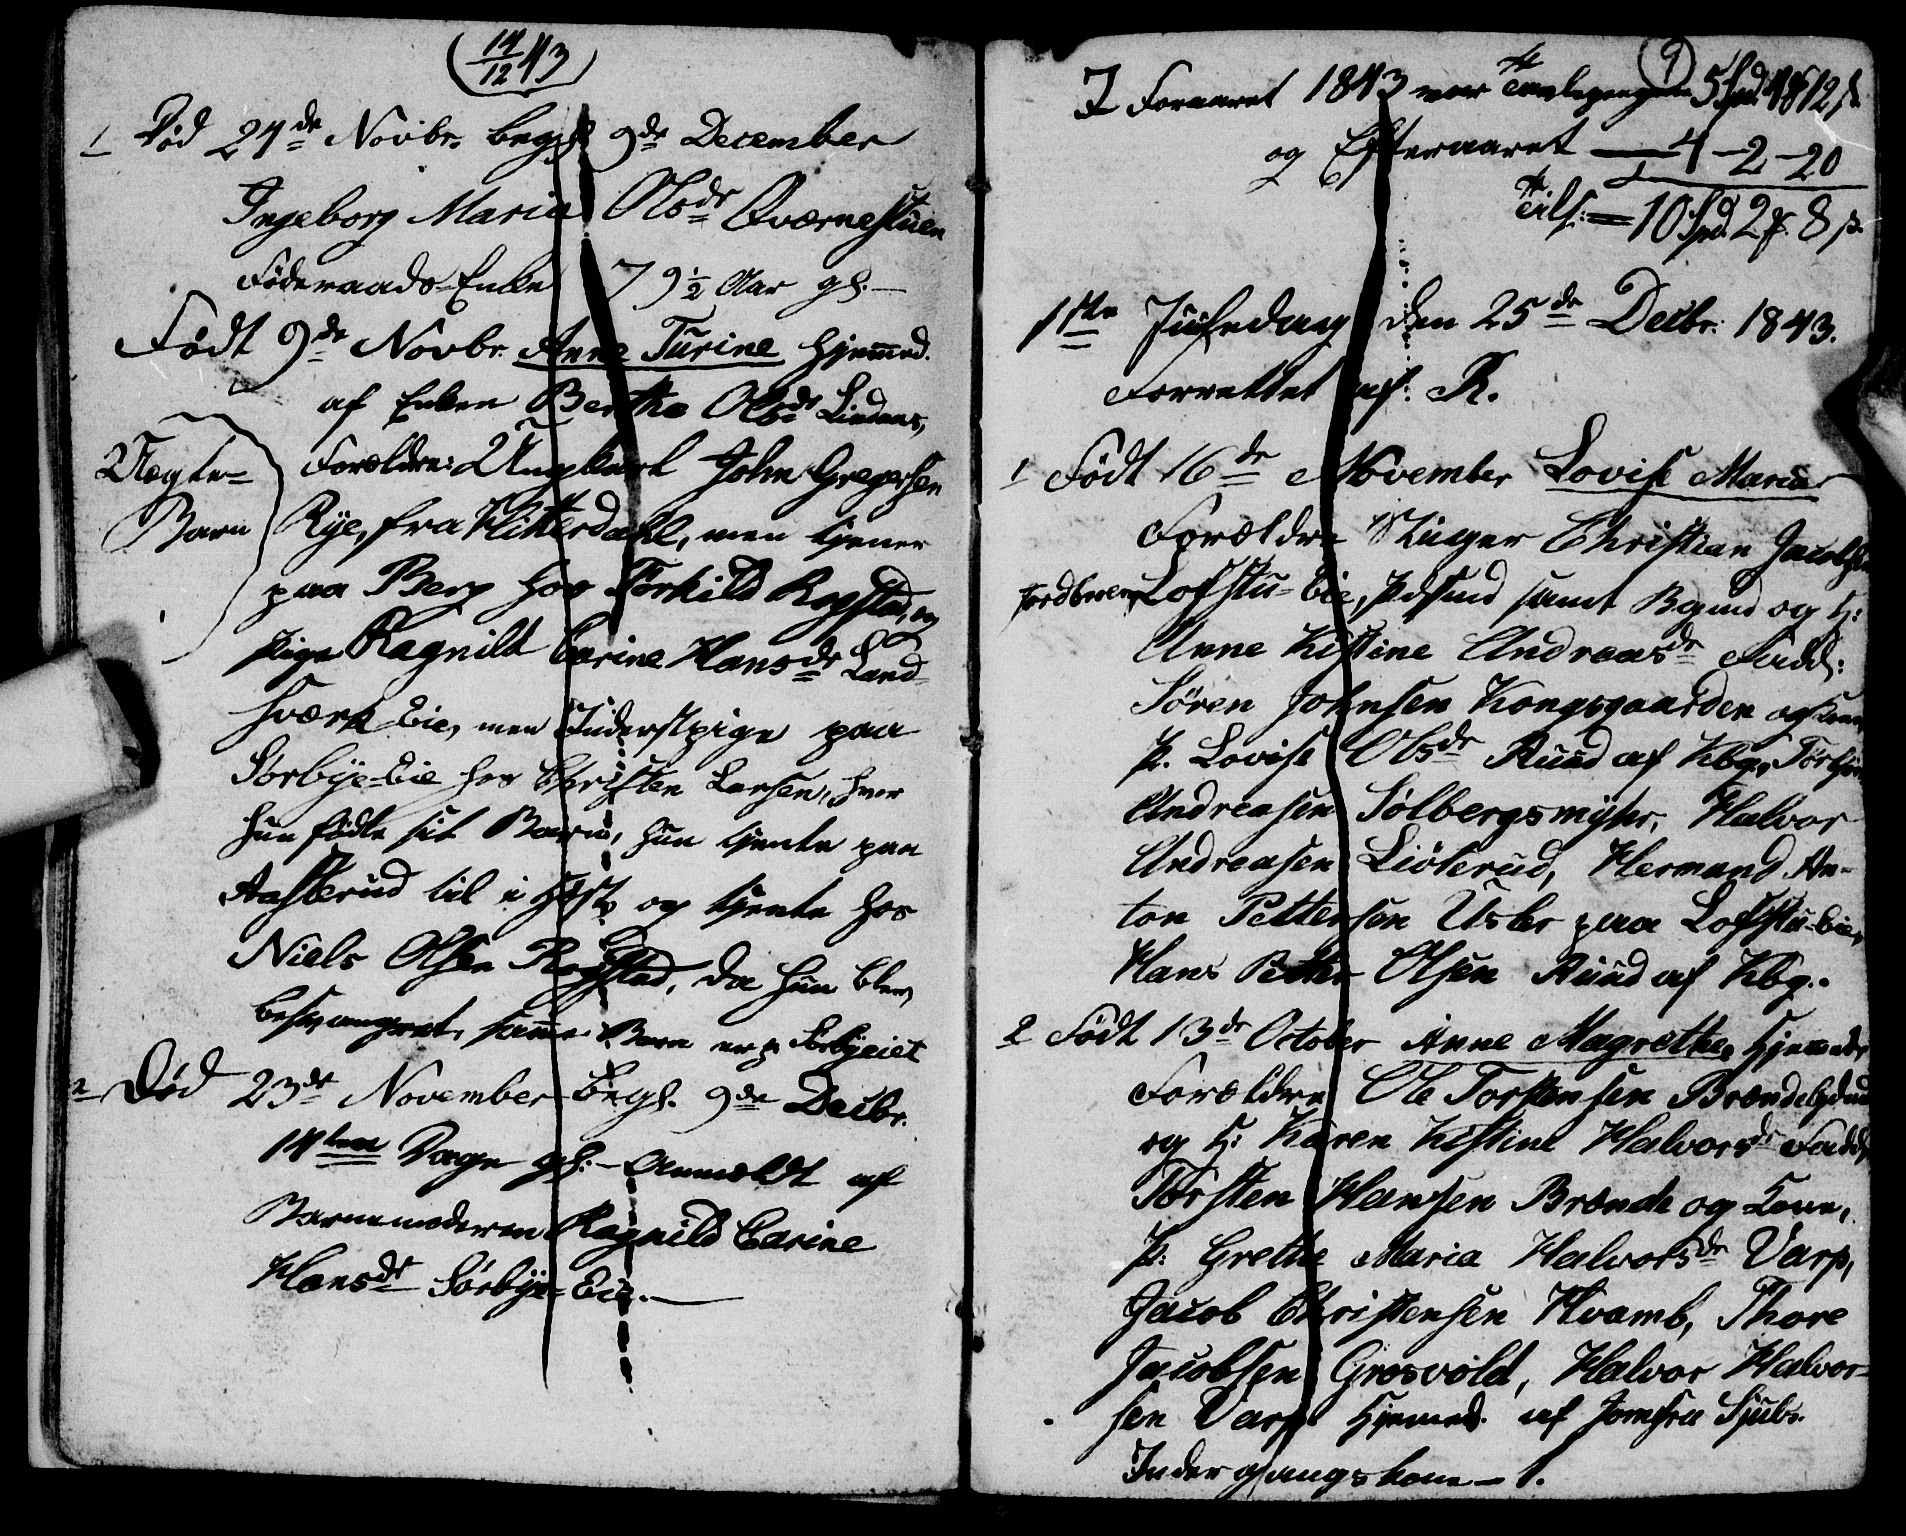 (14/12 43)
1 Død 24de Novbr. begr. 9de December
Ingeborg Maria Olsdr Qværnestuen
Føderaads-Enke 79½ Aar gl.—
Født 9de Novbr. Anne Turine hjemmed.
af Enken Berthe Olsdr
Uægte- Forældre: Ungkarl John Gregersen
Barn Rye, fra Hitterdahl, men tjener
paa Berg hos Torkild Rogstad, og
Pige Ragnild Carine Hansdr Land-
sværk-Eie, men Inderstpige paa
Sørbye-Eie hos Christen Larsen, hvor
hun fødte sit Barn, hun tjente paa
Aasterud til i Høst, og tjente hos
Niels Olsen Rogstad, da hun blev
besvangret, samme Barn er p. Sørbyeiet
2 Død 23de November begr. 9de Decbr.
14ten Dage gl.— Anmeldt af
Barnemoderen Ragnild Carine
Hansdr Sørbye-Eie.—
9
I Foraaret 1843 var 5 Spd. 4 12 s.
og Efteraaret — 4 – 2 – 20
Tils: = 10 Spd. 2 8 s.
1ste Juledag den 25de Decbr. 1843.
Forrettet af R.
1 Født 16de November Lovise Maria
Forældre Christian Jacobsen
Lofstu-Eie, samt og H:
Anne Kistine Andreasdr Fadd:
Søren Johnsen Kongsgaarden og Kone,
P. Lovise Olsdr Ruud af Kbg,
Andreasen Solbergsmyhr, Halvor
Andreasen Liøterud, Hermand An-
ton Pettersen paa Lofstu-Eie,
Hans Petter Olsen Ruud af Kbg.
2 Født 13de October Anne Magrethe, hjemmed.
Forældre Ole Torstensen
og H: Karen Kistine Halvorsdr Fadd:
Torsten Hansen Brænde og Kone,
P. Grethe Maria Halvorsdr Varp,
Jacob Christensen Hvamb, Thore
Jacobsen Grosvold, Halvor Halvor-
sen Varp hjemmed. af Jomfru
Indergangskone – 1.